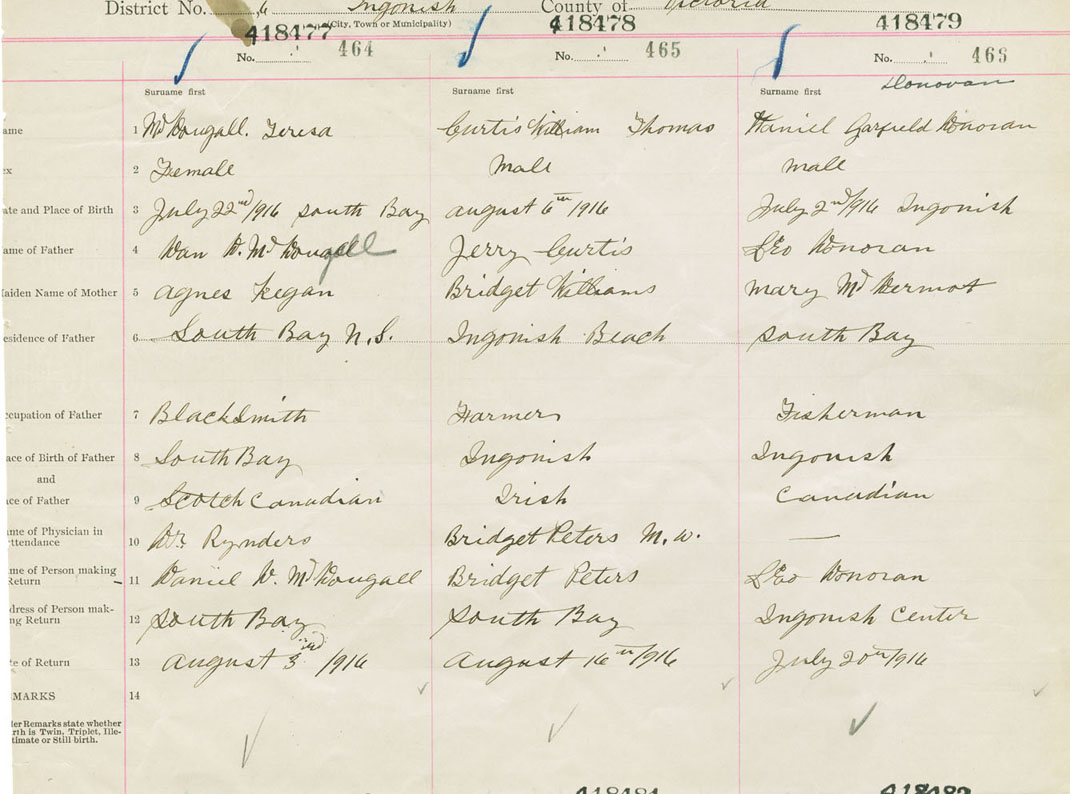 District No. 6 Ingonish County of Victoria
(City, Town or Municipality)
418477 418478 418479
No. 464 No. 465 No. 466
Donovan
Surname first Surname first Surname first
ame 1 McDougall. Teresa Curtis William Thomas Daniel Garfield Donovan
ex 2 Female Male male
ate and Place of Birth 3 July 22nd/916 South Bay august 6th 1916 July 2nd/916 Ingonish
ame of Father 4 Dan D. McDougall Jerry Curtis Leo Donovan
aiden Name of Mother 5 agnes Kegan Bridget Williams mary McDermot
esidence of Father 6 South Bay N.S. Ingonish Beach South Bay
ccupation of Father 7 BlackSmith Farmer Fisherman
ace of Birth of Father 8 South Bay Ingonish Ingonish
and
ce of Father 9 Scotch Canadian Irish Canadian
ame of Physician in
ttendance 10 Dr. Rynders Bridget Peters M.W. —
me of Person making
Return 11 Daniel D. McDougall Bridget Peters Leo Donovan
dress of Person mak-
ng Return 12 South Bay South Bay Ingonish Center
te of Return 13 august 3rd /916 August 16th/916 July 20th/916
MARKS 14
er Remarks state whether
rth is Twin, Triplet, Ille-
timate or Still birth.
418481